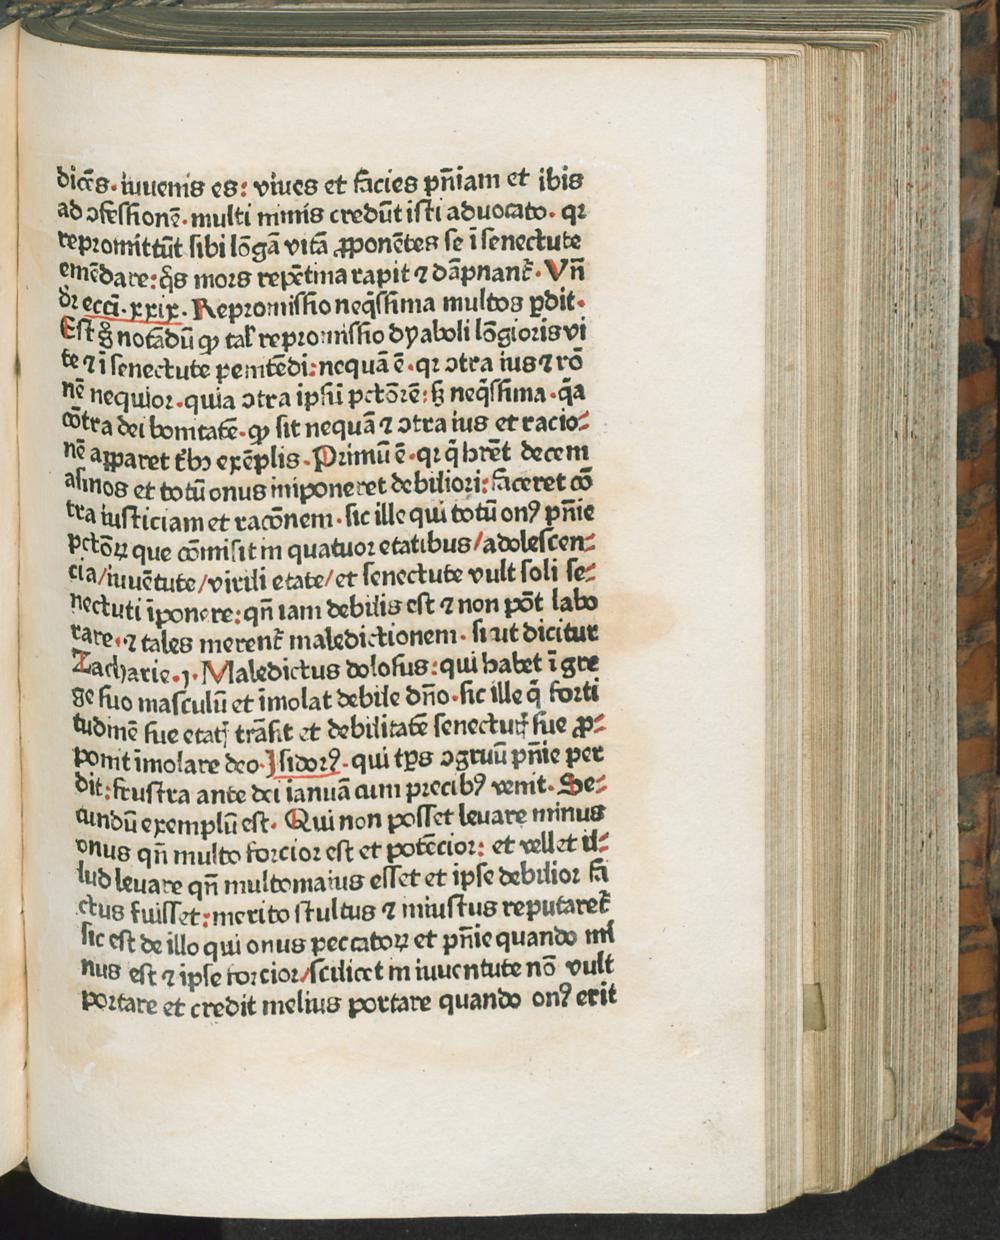 dicēs. iuuenis es: viues et facies pn̄iam et ibis
ad ↄfessionē. multi nimis credūt isti aduocato. qꝛ
repromittūt sibi lōgā vitā ꝓponētes se ī senectute
emēdare: q̄s mors repētina rapit ⁊ dāpnant᷑. Vn̄
dr̄ ecci. xxix. Repromissio neq̄ssima multos ꝑdit.
Est g̊ notādū ꝙ tal̓ repromissio dyaboli lōgioris vi
te ⁊ ī senectute penitēdi: nequā ē. qꝛ ↄtra ius ⁊ rō
nē nequior. quia ↄtra ipsū pctōrē: sꝫ neq̄ssima. q̄a
cōtra dei bonitatē. ꝙ sit nequā ⁊ ↄtra ius et racio⸗
nē apparet t̓bꝫ exēplis. Primū ē. qꝛ q̄ hr̄et decem
asinos et totū onus imponeret debiliori: faceret cō
tra iusticiam et racōnem. sic ille qui totū onꝰ pn̄ie
pctōꝝ que cōmisit in quatuor etatibus/adolescen⸗
cia/iuuētute/virili etate/et senectute vult soli se⸗
nectuti īponere: qn̄ iam debilis est ⁊ non pōt labo
rare. ⁊ tales merent᷑ maledictionem. sicut dicitur
Zacharie. j. Maledictus dolosus: qui habet ī gre
ge suo masculū et īmolat debile dn̄o. sic ille q̄ forti
tudinē sue etatꝭ trāsit et debilitatē senectutꝭ sue ꝓ⸗
ponit īmolare deo. Isidorꝰ. qui tp̄s ↄgruū pn̄ie per
dit: frustra ante dei ianuā cum precibꝰ venit. Se⸗
cundū exemplū est. Qui non posset leuare minus
onus qn̄ multo forcior est et potēcior: et vellet il⸗
lud leuare qn̄ multo maius esset et ipse debilior fa
ctus fuisset: merito stultus ⁊ iniustus reputaret᷑
sic est de illo qui onus peccatoꝝ et pn̄ie quando mi
nus est ⁊ ipse forcior/scilicet in iuuentute nō vult
portare et credit melius portare quando onꝰ erit